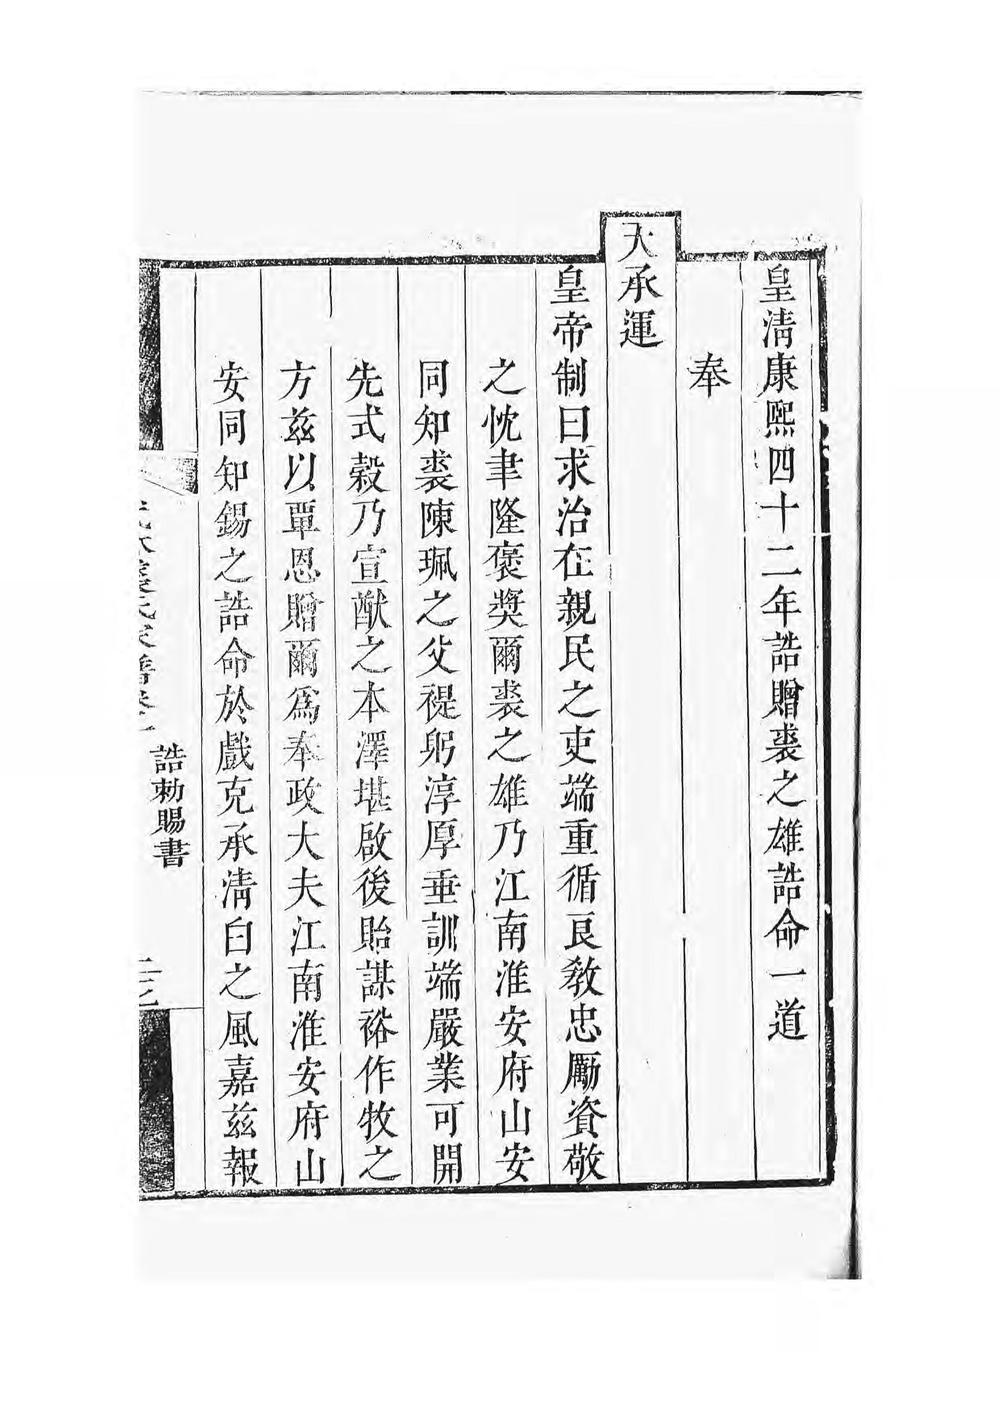 皇清康熙四十二年誥贈裘之雄誥命一道
奉
天承運
皇帝制曰求治在親民之吏端重循良教忠勵資敬
之忱聿隆褒獎爾裘之雄乃江南淮安府山安
同知裘陳珮之父褆躬淳厚垂訓端嚴業可開
先式穀乃宣猷之本澤堪啟後貽謀裕作牧之
方茲以覃恩贈爾為奉政大夫江南淮安府山
安同知錫之誥命於戲克承清白之風嘉茲報
誥勅賜書